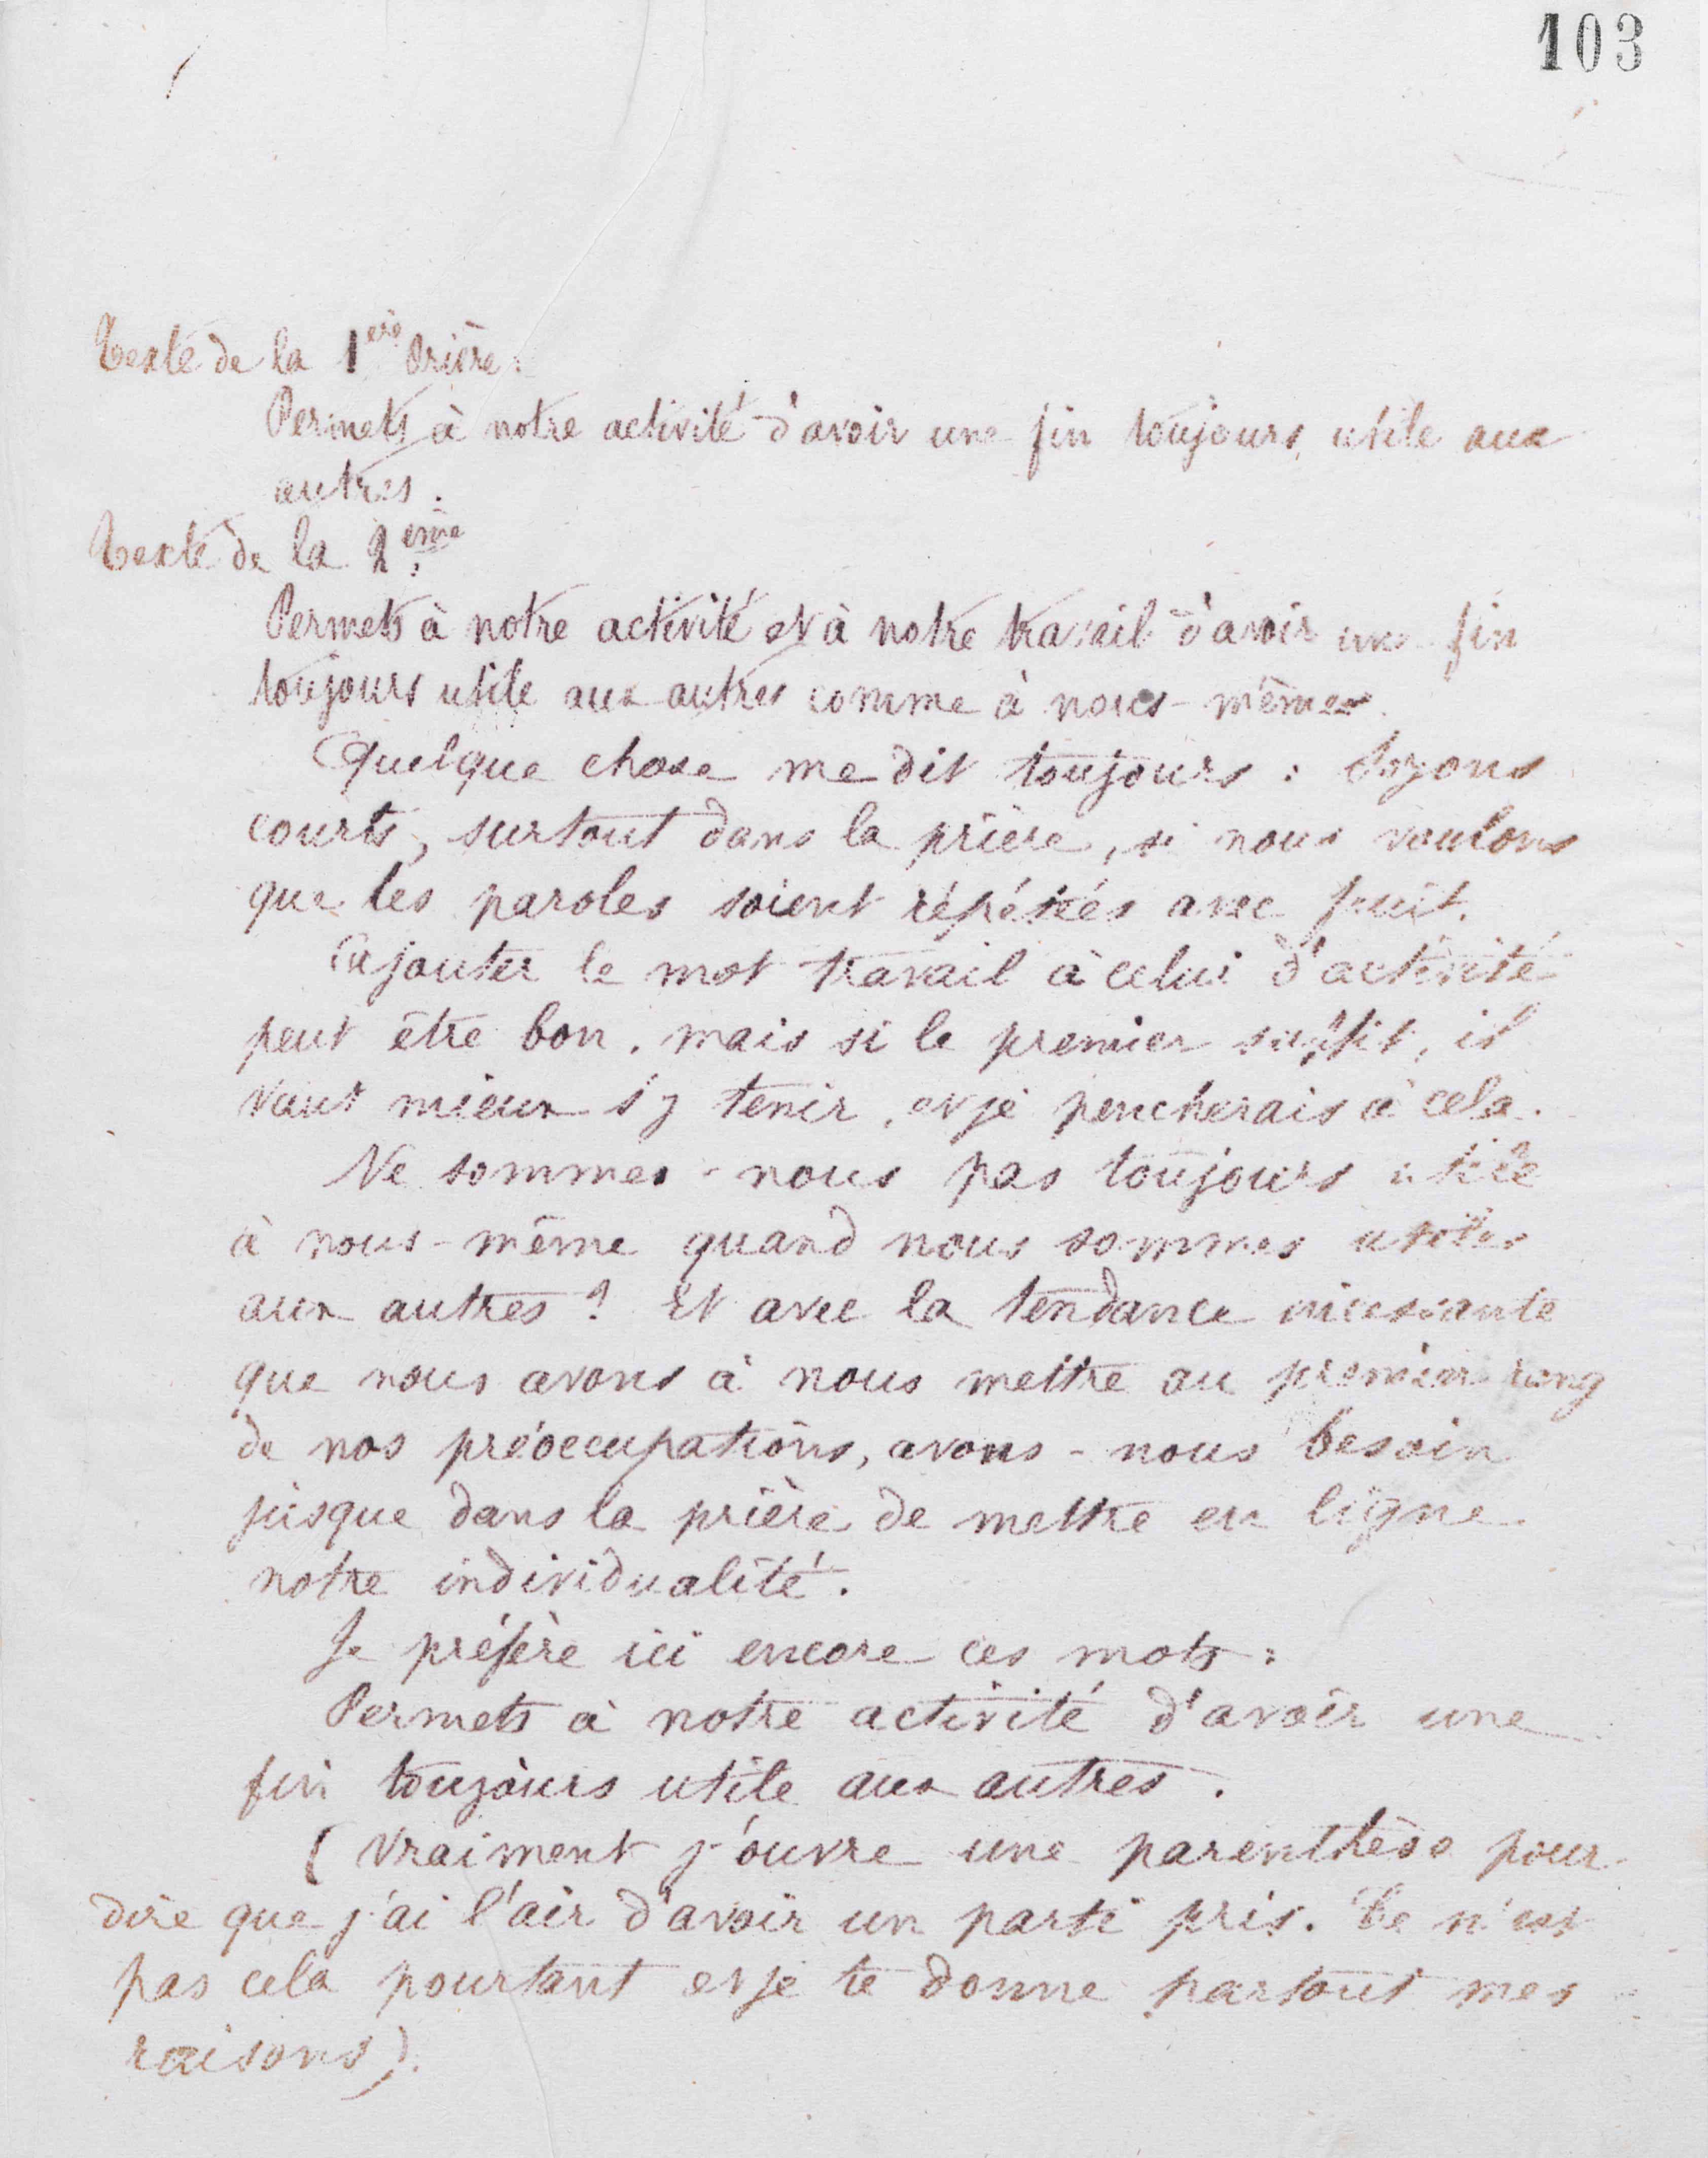 103
Texte de la 1ère Prière :
Permets à notre activité d'avoir une fin toujours utile aux
autres.
Texte de la 2ème :
Permets à notre activité et à notre travail d'avoir une fin
toujours utile aux autres comme à nous-mêmes.
Quelque chose me dit toujours : Soyons
courts, surtout dans la prière, si nous voulons
que les paroles soient répétées avec fruit.
Ajouter le mot travail à celui d'activité
peut être bon, mais si le premier suffit, il
vaut mieux s'y tenir, et je pencherais à cela.
Ne sommes-nous pas toujours utile
à nous-même quand nous sommes utiles
aux autres ? Et avec la tendance incessante
que nous avons à nous mettre au premier rang
de nos préoccupations, avons-nous besoin
jusque dans la prière de mettre en ligne
notre individualité.
Je préfère ici encore ces mots :
Permets à notre activité d'avoir une
fin toujours utile aux autres.
(Vraiment j'ouvre une parenthèse pour
dire que j'ai l'air d'avoir un parti pris. Ce n'est
pas cela pourtant et je te donne partout mes
raisons).